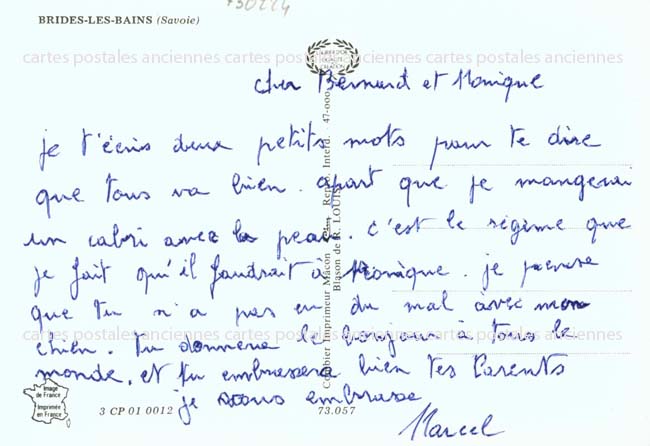 730224
BRIDES-LES-BAINS (Savoie)
cartes postales anciennes cartes postales anciennes cartes postales anciennes
cher Bernard et Monique
je t'écris deux petits mots pour te dire
que tous va bien. apart que je mangerai
un cabri avec la peau. c'est le régime que
je fait qu'il faudrait à Monique. je pense
que tu n'a pas eu du mal avec mon
cartes postales anciennes cartes postales anciennes cartes postales anciennes
chien. Tu donnera le bonjour à tous le
monde, et tu embrassera bien tes Parents
je vous embrasse
Marcel
Combier Imprimeur Mâcon Repro. Interd. 47-000
Blason de R. LOUIS
Image de France
Imprimée en France
3 CP 01 0012
73.057